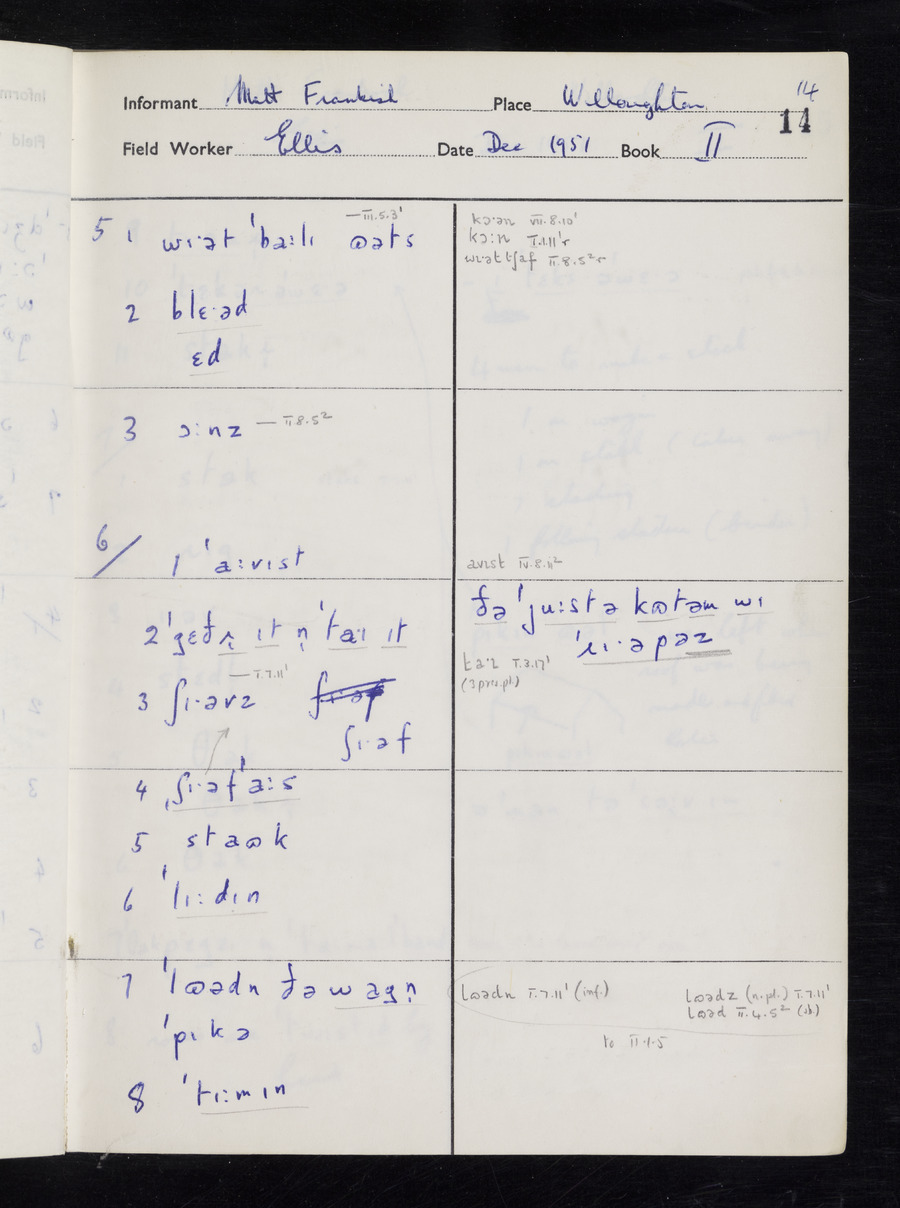 14
Informant Matt Frankish Place Willoughton
14
Field Worker Ellis Date Dec 1951 Book II
— III.5.3'
5 1 wɪ·ət ˈbaːlɪ ɷəts
kɔ·ən VII.8.10'
kɔːn II.1.11'r
wɪ·ət tʃaf II.8.5²r
2 blɛ·əd
ɛd
3 ɔːnz — II.8.5²
6/ 1 ˈaːvɪst
avɪst IV.8.11²
2 ˈgɛðr̩ ɪt n̩ ˈtaːɪ ɪt
ðə ˈjuːstə kɷtəm wɪ
ˈɹɪ·əpəz
taˑɪ I.3.17'
(3 pres. pl.)
— I.7.11'
3 ʃɪ·əvz
ʃɪ·əf
4 ˌʃɪ·əfˈaːs
5 staɷk
6 ˈlɪːdɪn
7 ˈlɷədn ðə wagn̩
ˈpɪkə
lɷədn I.7.11' (inf.)
lɷədz (n.pl.) I.7.11'
lɷəd II.4.5² (sb.)
to II.1.5
8 ˈtɪːmɪn